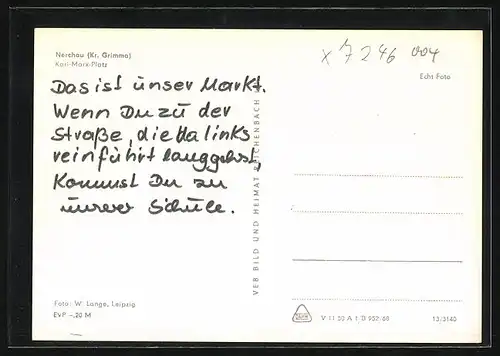 Nerchau (Kr. Grimma)
Karl-Marx-Platz
x 7246 004
Echt Foto
Das ist unser Markt.
Wenn Du zu der
Straße, die da links
reinführt langgehst,
Kommst Du zu
unserer Schule.
VEB BILD UND HEIMAT REICHENBACH
Foto: W. Lange, Leipzig
EVP -,20 M
V 11 50 A 1 D 952/68
13/3140